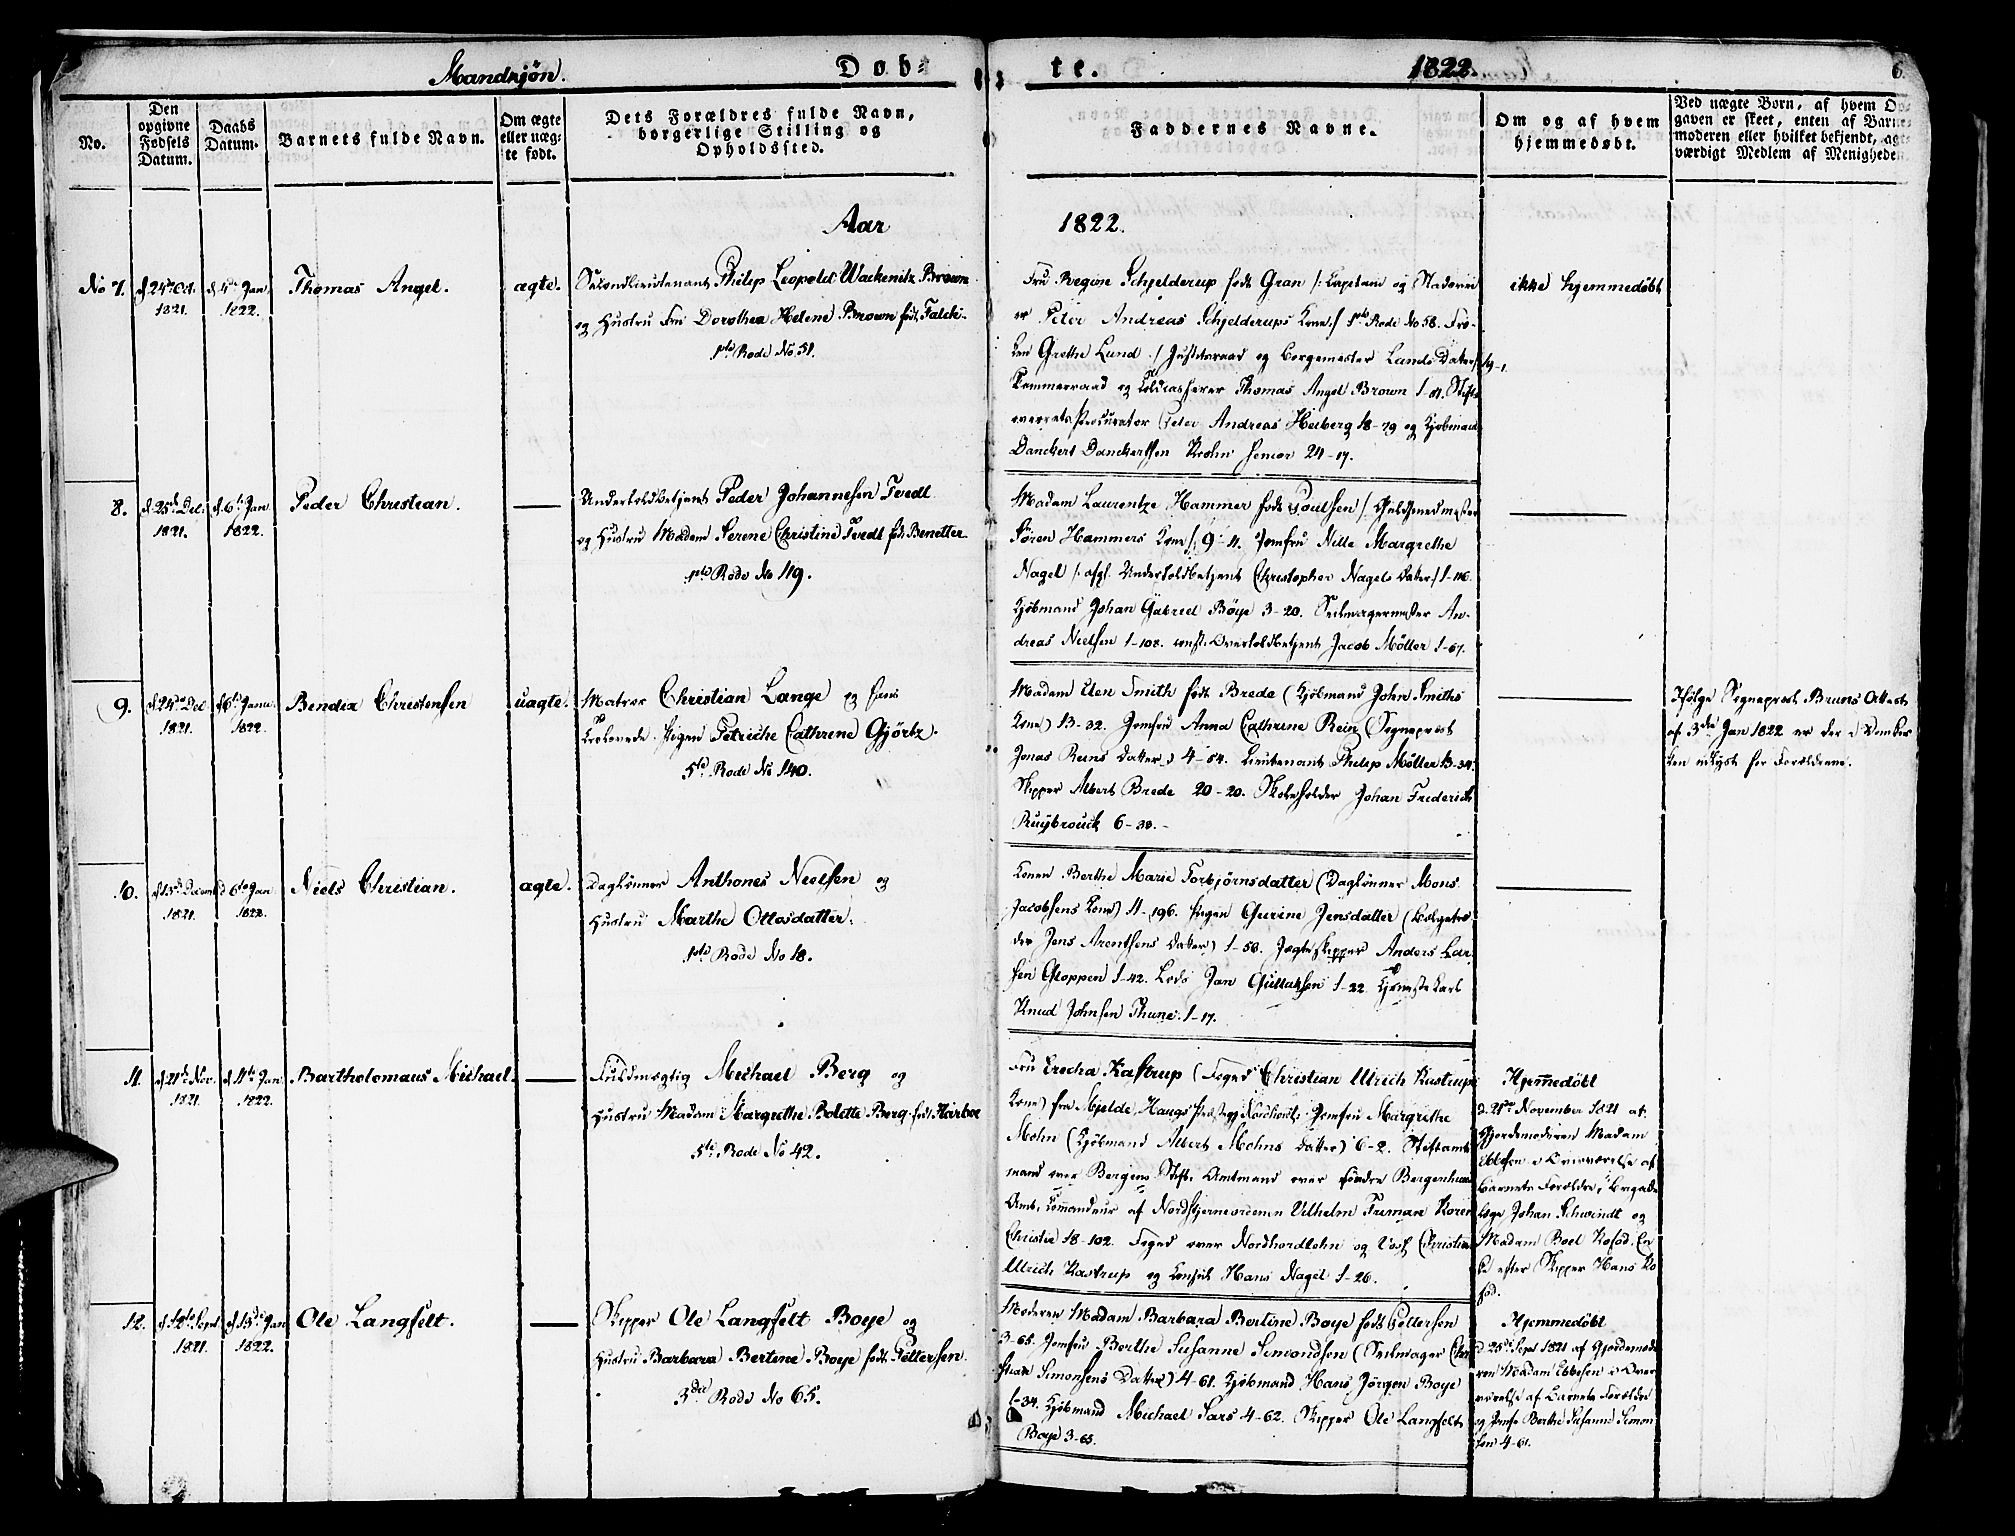 Mandkjøn.
Døbte.
1822.
6
No.
Den opgivne Fødsels Datum.
Daabs Datum.
Barnets fulde Navn.
Om ægte eller uægte født.
Dets Forældres fulde Navn, borgerlige Stilling og Opholdssted.
Faddernes Navne.
Om og af hvem hjemmedøbt.
Ved uægte Børn, af hvem Opgaven er skeet, enten af Barnemoderen eller hvilket bekjendt, agtværdigt Medlem af Menigheden.
Aar 1822.
No 7.
d. 24de Oct. 1821.
d. 4de Jan 1822.
Thomas Angel.
ægte.
Secondlieutenant Philip Leopold Wackenitz Brown
og Hustru Fru Dorothea Helene Brown født Falch.
1ste Rode No. 51.
Fru Regine Schjelderup født Gran /: Capitain og
Peter Andreas Schjelderups Kone :/ 1ste Rode No 58. Frø-
ken Grethe Lund /: Justitsraad og Borgemester Lunds Datter :/ 19-1.
Kammerraad og Toldcasserer Thomas Angel Brown 1-51. Stifts
overrets Procurator Peter Andreas Heiberg 18-79 og Kjøbmand
Danckert Danckertsen Krohn senior 24-17.
ikke hjemmedøbt
8.
d. 25de Dec. 1821.
d. 6te Jan 1822.
Peder Christian.
Undertoldbetjent Peder Johannesen Tvedt
og Hustru Madam Serene Christine Tvedt født Benetter.
1ste Rode No 119.
Madam Laurentze Hammer født Poulsen /: Guldsmedmester
Søren Hammers Kone :/ 9-11. Jomfru Nille Margrethe
Nagel /: afg. Undertoldbetjent Christopher Nagels Datter :/ 1-116.
Kjøbmand Johan Gabriel Bøye 3-20. Seilmagermester An-
dreas Nielsen 1-108. const. Overtoldbetjent Jacob Møller 1-67.
9.
d. 24de Dec 1821.
d. 6te Janu. 1822.
Bendix Christensen
uægte.
Matros Christian Lange og hans
trolovede Pigen Petriche Cathrine Gjørtz.
5te Rode No 140.
Madam Elen Smith født Brede (Kjøbmand John Smiths
Kone) 13-32. Jomfru Anna Cathrine Rein (Sognepræst
Jonas Reins Datter) 4-54. Lieutenant Philip Møller 13-34.
Skipper Albert Brede 20-20. Skoleholder Johan Frederich
Ruijbrouck 6-38.
Ifølge Sogneprest Bruns Attest
af 3die Jan 1822 er der i Domkir
ken udlyst for Forældrene.
10.
d. 15de Decemb 1821.
d 6te Jan 1822.
Niels Christian.
ægte.
Daglønner Anthones Nielsen og
Hustru Marthe Ottosdatter.
1ste Rode No 18.
Konen Berthe Marie Torbjørnsdatter (Daglønner Mons
Jacobsens Kone) 11-196. Pigen Gurine Jensdatter
Jens Arentsens Datter) 1-50. Jægteskipper Anders Lar-
sen Gloppen 1-42. Lods Jan Gullaksen 1-22.
Knud Johnsen Thune. 1-17.
11.
d 21de Nov. 1821.
d. 11te Jan 1822.
Bartholomæus Michael.
Fuldmægtig Michael Berg og
Hustru Madam Margrethe Bolette Berg født Harboe
5te Rode No 42.
Fru Ericha Kastrup (Foged Christian Ulrich Kastrups
Kone) fra Mjelde Haugs Præstegj. Nordhordl. Jomfru Margrethe
Mohn (Kjøbmand Albert Mohns Datter) 6-2. Stiftamt-
mand over Bergens Stift, Amtmand over søndre Bergenhuus
Amt, Commandeur af Nordstjerneordenen Vilhelm Friman Koren
Christie 18-102. Foged over Nordhordlehn og Voss Christian
Ulrich Kastrup og Consul Hans Nagel 1-26.
Hjemmedøbt
d. 21de November 1821 af
Gjordemoderen Madam
Ebbesen i Overværelse af
Barnets Forældre, Brigade
læge Johan Schwindt og
Madam Boel Kofod. En
ke efter Skipper Hans Ko
fod.
12.
d. 12te Sept. 1821.
d 13de Jan 1822.
Ole Langfelt.
Skipper Ole Langfelt Boye og
Hustru Barbara Bertine Boye født Pettersen.
3die Rode No 65.
Moderen Madam Barbara Bertine Boye født Pettersen
3-65. Jomfru Berthe Susanne Simondsen (Seilmager Chri
stian Simonsens Datter) 4-61. Kjøbmand Hans Jørgen Boye
1-34. Kjøbmand Michael Sars 4-62. Skipper Ole Langfeldt
Boye 3-65.
Hjemmedøbt
d. 25de Sept 1821 af Gjordemode
ren Madam Ebbesen i Over
værelse af Barnets Forældre
og Jomfr Berthe Susanne Simon
sen 4-61.